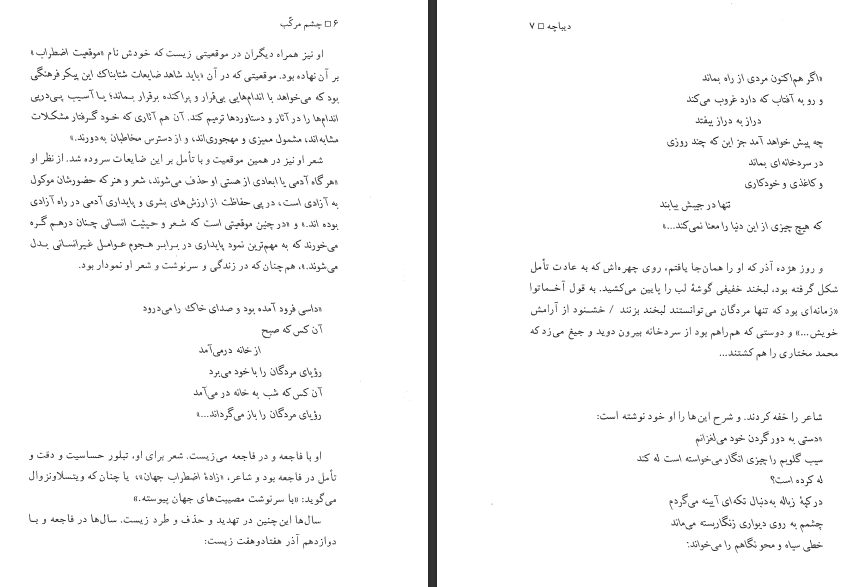 ۶ □ چشم مرکّب
او نیز همراه دیگران در موقعیتی زیست که خودش نام «موقعیت اضطراب»
بر آن نهاده بود. موقعیتی که در آن «باید شاهد ضایعات شتابناک این پیکر فرهنگی
بود که می‌خواهد با اندام‌هایی بی‌قرار و پراکنده برقرار بماند؛ یا آسیب پی‌درپی
اندام‌ها را در آثار و دستاوردها ترمیم کند. آن هم آثاری که خود گرفتار مشکلات
مشابه‌اند، مشمول ممیزی و مهجوری‌اند، و از دسترس مخاطبان به‌دورند.»
شعر او نیز در همین موقعیت و با تأمل بر این ضایعات سروده شد. از نظر او
«هر گاه آدمی یا ابعادی از هستی او حذف می‌شوند، شعر و هنر که حضورشان موکول
به آزادی است، در پی حفاظت از ارزش‌های بشری و پایداری آدمی در راه آزادی
بوده اند.» و «در چنین موقعیتی است که شعر و حیثیت انسانی چنان درهم گره
می‌خورند که به مهم‌ترین نمود پایداری در برابر هجوم عوامل غیرانسانی بدل
می‌شوند.»، هم‌چنان که در زندگی و سرنوشت و شعر او نمودار بود.
«داسی فرود آمده بود و صدای خاک را می‌درود
آن کس که صبح
از خانه درمی‌آمد
رؤیای مردگان را با خود می‌برد
آن کس که شب به خانه در می‌آمد
رؤیای مردگان را باز می‌گرداند...»
او با فاجعه و در فاجعه می‌زیست. شعر برای او، تبلور حساسیت و دقت و
تأمل در فاجعه بود و شاعر، «زادهٔ اضطراب جهان»، یا چنان‌که ویتسلاونزوال
می‌گوید: «با سرنوشت مصیبت‌های جهان پیوسته.»
سال‌ها این‌چنین در تهدید و حذف و طرد زیست. سال‌ها در فاجعه و با
دوازدهم آذر هفتادوهفت زیست:
دیباچه □ ۷
«اگر هم‌اکنون مردی از راه بماند
و رو به آفتاب که دارد غروب می‌کند
دراز به دراز بیفتد
چه پیش خواهد آمد جز این که چند روزی
در سردخانه‌ای بماند
و کاغذی و خودکاری
تنها در جیبش بیابند
که هیچ چیزی از این دنیا را معنا نمی‌کند...»
و روز هژده آذر که او را همان‌جا یافتم، روی چهره‌اش که به عادت تأمل
شکل گرفته بود، لبخند خفیفی گوشهٔ لب را پایین می‌کشید. به قول آخماتوا
«زمانه‌ای بود که تنها مردگان می‌توانستند لبخند بزنند / خشنود از آرامش
خویش...» و دوستی که هم‌راهم بود از سردخانه بیرون دوید و جیغ می‌زد که
محمد مختاری را هم کشتند...
شاعر را خفه کردند. و شرح این‌ها را او خود نوشته است:
«دستی به دور گردن خود می‌لغزانم
سیب گلویم را چیزی انگار می‌خواسته است له کند
له کرده است؟
در کپهٔ زباله به‌دنبال تکه‌ای آیینه می‌گردم
چشمم به روی دیواری زنگاربسته می‌ماند
خطی سیاه و محو نگاهم را می‌خواند: